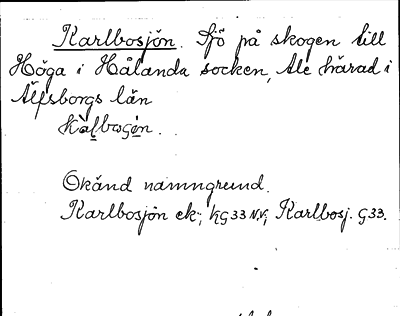 Karlbosjön. Sjö på skogen till
Höga i Hålanda socken, Ale härad i
Älfsborgs län
Karlbosjön ek; KG33 N.V; Karlbosj. G33.
Okänd namngrund.